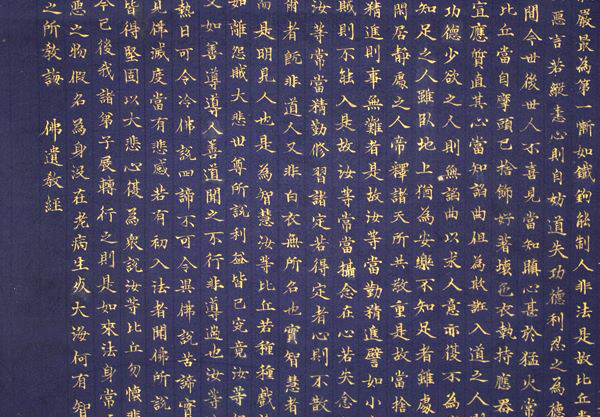 嚴最為第一慚如鐵鉤能制人非法是故比丘常
惡言若縱恚心則自妨道失功德利忍之為
間今世後世人不喜見當知瞋心甚於猛火常
比丘當自摩頭已捨飾好著壞色衣執持應器
宜應質直其心當知諂曲但為欺誑入道之人
功德少欲之人則無諂曲以求人意亦復不為
知足之人雖臥地上猶為安樂不知足者雖處
閑居靜處之人帝釋諸天所共敬重是故當捨
精進則事無難者是故汝等當勤精進譬如小
賊則不能入是故汝等常當攝念在心若失念
汝等常當精勤修習諸定若得定者心則不散
爾者既非道人又非白衣無所名也實智慧者
而是明見人也是為智慧汝等比丘若種種戲
如離怨賊大悲世尊所說利益皆已究竟汝等
又如善導導人善道聞之不行非導過也汝等
熱日可令冷佛說四諦不可令異佛說苦諦實
見佛滅度當有悲感若有初入法者聞佛所說
皆得堅固以大悲心復為眾說汝等比丘勿懷悲
今已後我諸弟子展轉行之則是如來法身常
惡之物假名為身沒在老病生死大海何有智
之所教誨 佛遺教經